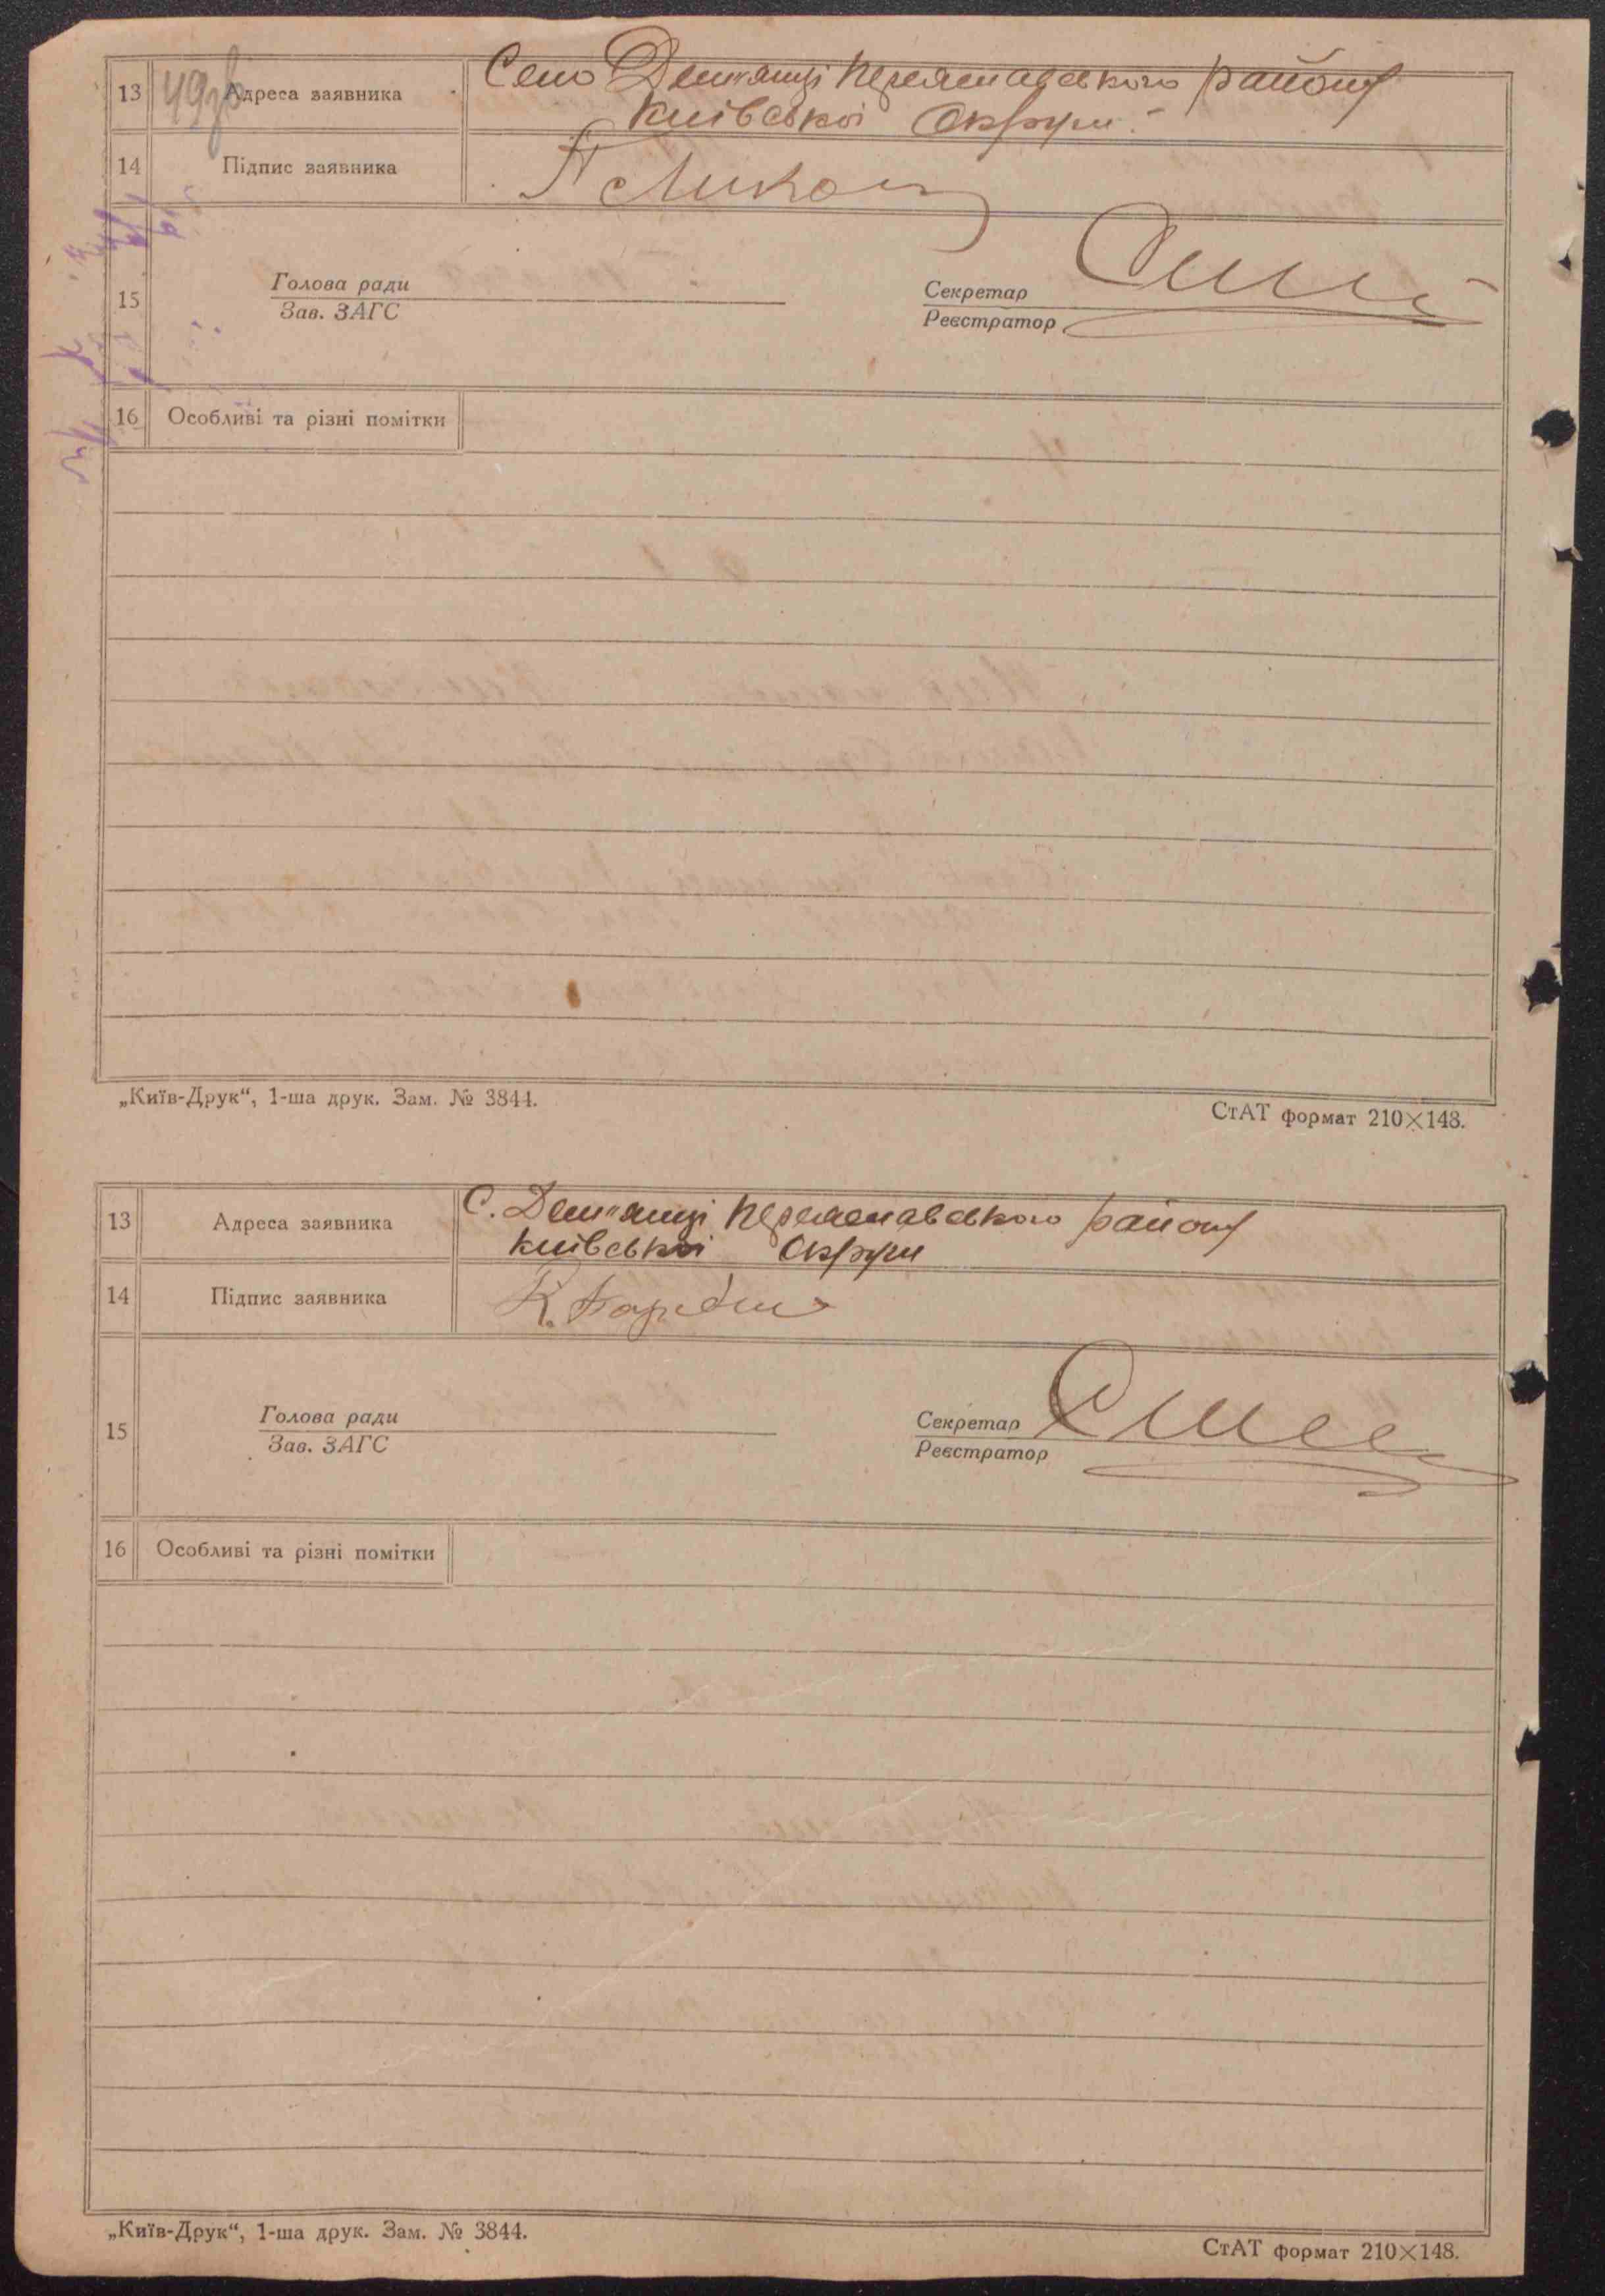 49зв
13 Адреса заявника Село Дем'янці Переяславського району
Київської Округи.
14 Підпис заявника
15 Голова ради
Зав. ЗАГС
Секретар
Реєстратор
16 Особливі та різні помітки
„Київ-Друк“, 1-ша друк. Зам. № 3844.
СтАТ формат 210×148.
13 Адреса заявника С. Дем'янці Переяславського району
Київської Округи
14 Підпис заявника К.
15 Голова ради
Зав. ЗАГС
Секретар
Реєстратор
16 Особливі та різні помітки
„Київ-Друк“, 1-ша друк. Зам. № 3844.
СтАТ формат 210×148.